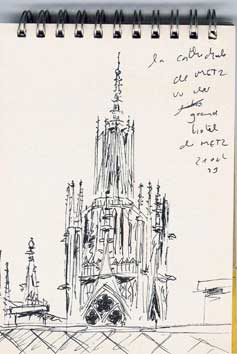 la cathédrale
de METZ
vu du
grand
hotel
de METZ
21 oct